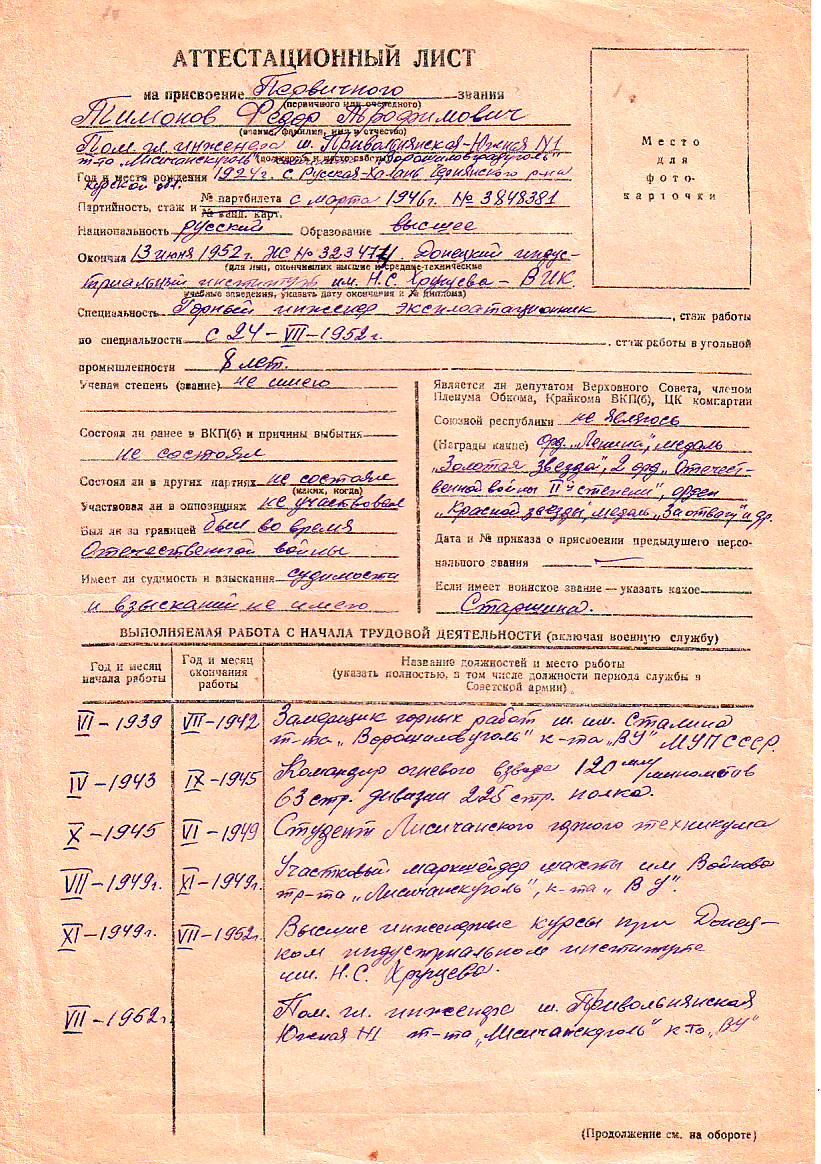 АТТЕСТАЦИОННЫЙ ЛИСТ
на присвоение Первичного звания
(первичного или очередного)
Тимонов Федор Трофимович
(звание, фамилия, имя и отчество)
Пом. гл. инженера ш. Привольнянская-Южная №1
т-та „Лисичанскуголь" комбината „Ворошиловградуголь"
(должность и место работы)
Год и место рождения 1924 г. с. Русская-Халань Чернянского р-на
Курской обл.
Партийность, стаж и № партбилета с марта 1946 г. № 3848381
№ канд. карт.
Национальность русский Образование высшее
Окончил 13 июня 1952 г. ЖС № 323474 Донецкий индус-
(для лиц, окончивших высшие и средне-технические
триальный институт им. Н.С. Хрущева – ВИК.
учебные заведения, указать дату окончания и № диплома)
Специальность Горный инженер эксплоатационник, стаж работы
по специальности с 24-VII-1952 г. , стаж работы в угольной
промышленности 8 лет.
Место
для
фото-
карточки
Ученая степень (звание) не имею
Состоял ли ранее в ВКП(б) и причины выбытия
не состоял
Состоял ли в других партиях не состоял
(каких, когда)
Участвовал ли в оппозициях не участвовал
Был ли за границей был во время
Отечественной войны
Имеет ли судимость и взыскания судимости
и взысканий не имею
Является ли депутатом Верховного Совета, членом
Пленума Обкома, Крайкома ВКП(б), ЦК компартии
Союзной республики не являюсь
(Награды какие) орд. „Ленина", медаль
„Золотая звезда", 2 орд. „Отечест-
венной войны II й степени", орден
„Красной звезды", медаль „За отвагу" и др.
Дата и № приказа о присвоении предыдущего персо-
нального звания —
Если имеет воинское звание — указать какое
Старшина.
ВЫПОЛНЯЕМАЯ РАБОТА С НАЧАЛА ТРУДОВОЙ ДЕЯТЕЛЬНОСТИ (включая военную службу)
Год и месяц начала работы
Год и месяц окончания работы
Название должностей и место работы
(указать полностью, в том числе должности периода службы в
Советской армии)
VI-1939 VII-1942 Замерщик горных работ ш. им. Сталина
т-та „Ворошиловуголь" к-та „ВУ" МУП СССР.
IV-1943 IX-1945 Командир огневого взвода 120 м/м минометов
63 стр. дивизии 225 стр. полка.
X-1945 VI-1949 Студент Лисичанского горного техникума
VII-1949 г. XI-1949 г. Участковый маркшейдер шахты им Войкова
тр-та „Лисичанскуголь", к-та „ВУ".
XI-1949 г. VII-1952 г. Высшие инженерные курсы при Донец-
ком индустриальном институте
им. Н.С. Хрущева.
VII-1952 г. Пом. гл. инженера ш. Привольнянская
Южная №1 т-та „Лисичанскуголь" к-та „ВУ"
(Продолжение см. на обороте)